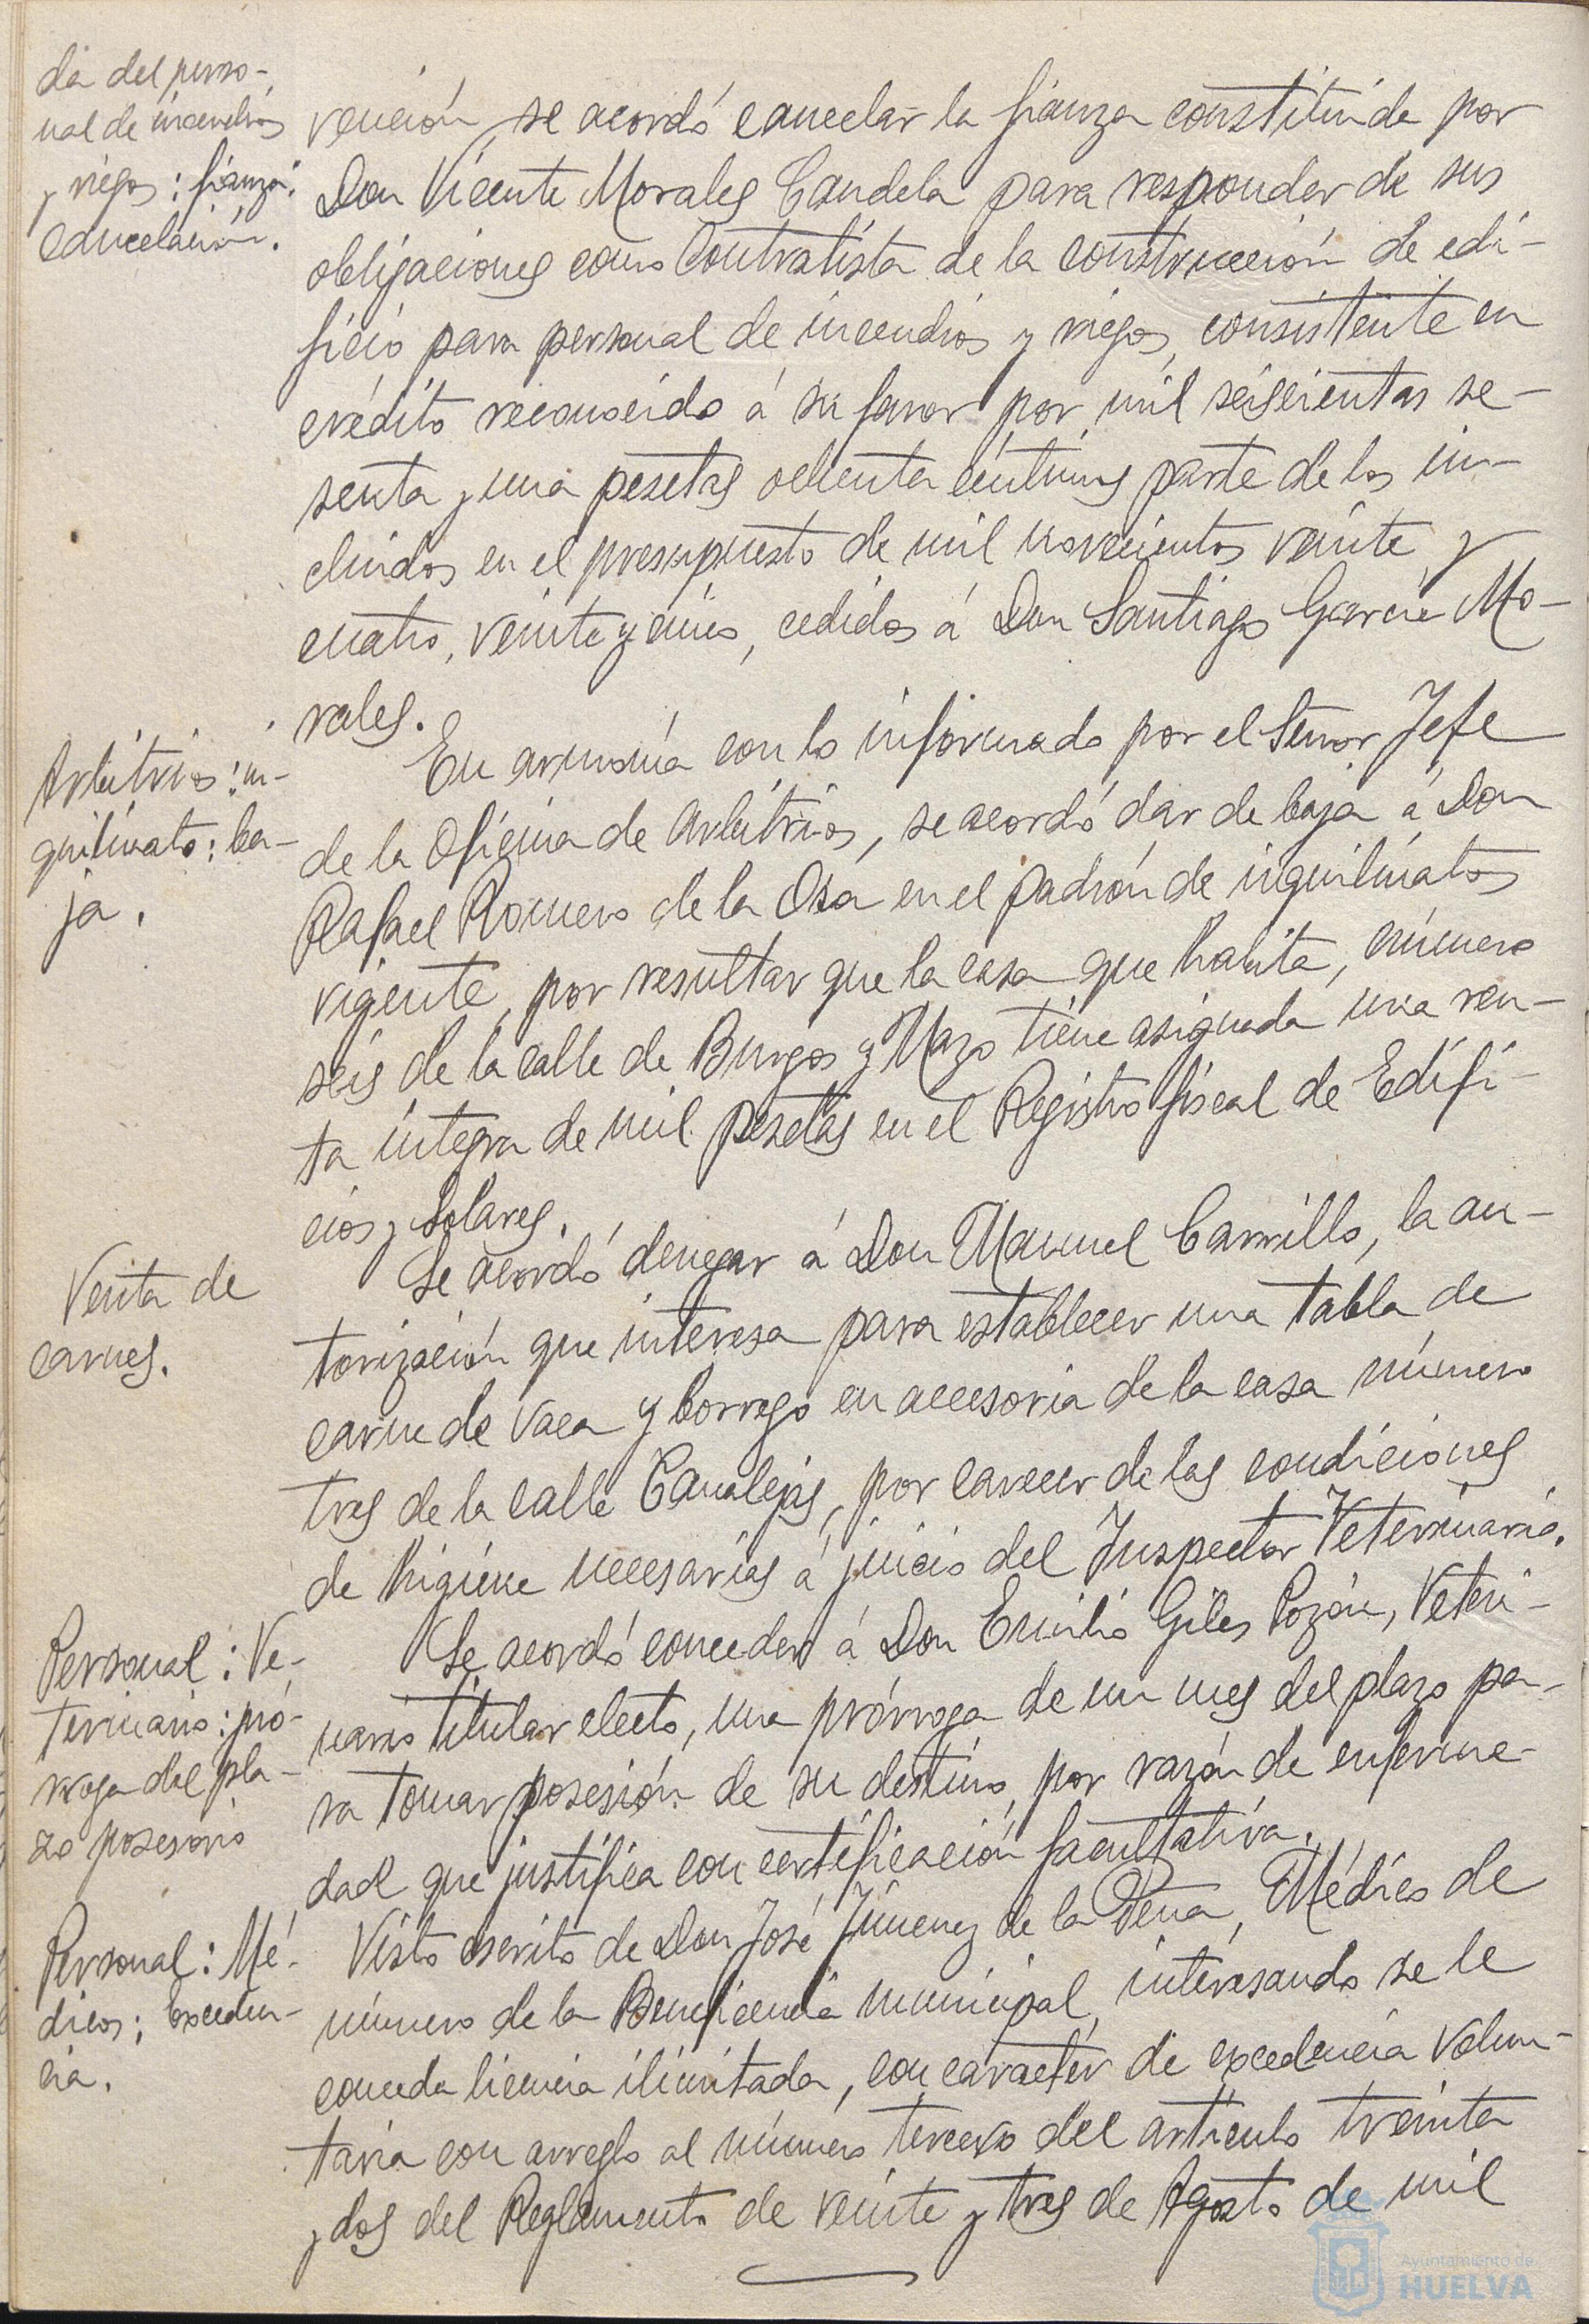 da del perso-
nal de incendios
y riegos: fianza:
cancelación.
vención, se acordó cancelar la fianza constituida por
Don Vicente Morales Candela para responder de sus
obligaciones como Contratista de la construcción de edi-
ficio para personal de incendios y riegos, consistente en
crédito reconocido á su favor por mil seiscientas se-
senta y una pesetas ochenta céntimos parte de los in-
cluidos en el presupuesto de mil novecientos veinte y
cuatro, veinte y cinco, cedidos á Don Santiago García Mo-
rales.
Arbitrios: in-
quilinato: ba-
ja.
En armonía con lo informado por el Señor Jefe
de la Oficina de Arbitrios, se acordó dar de baja á Don
Rafael Romero de la Osa en el padrón de inquilinatos
vigente, por resultar que la casa que habita, número
seis de la calle de Burgos y Mazo tiene asignada una ren-
ta íntegra de mil pesetas en el Registro fiscal de Edifi-
cios y Solares.
Venta de
carnes.
Se acordó denegar á Don Manuel Carrillo, la au-
torización que interesa para establecer una tabla de
carne de vaca y borrego en accesoria de la casa número
tres de la calle Canalejas, por carecer de las condiciones
de higiene necesarias á juicio del Inspector Veterinario.
Personal: Ve-
terinario: pró-
rroga del pla-
zo posesorio
Se acordó conceder á Don Emilio Giles Pozón, Veteri-
nario titular electo, una prórroga de un mes del plazo pa-
ra tomar posesión de su destino, por razón de enferme-
dad que justifica con certificación facultativa.
Personal: Mé-
dicos; Exceden-
cia.
Visto escrito de Don José Jiménez de la Peña, Médico de
número de la Beneficencia municipal, interesando se le
conceda licencia ilimitada, con carácter de excedencia volun-
taria con arreglo al número tercero del artículo treinta
y dos del Reglamento de veinte y tres de Agosto de mil
Ayuntamiento de
HUELVA